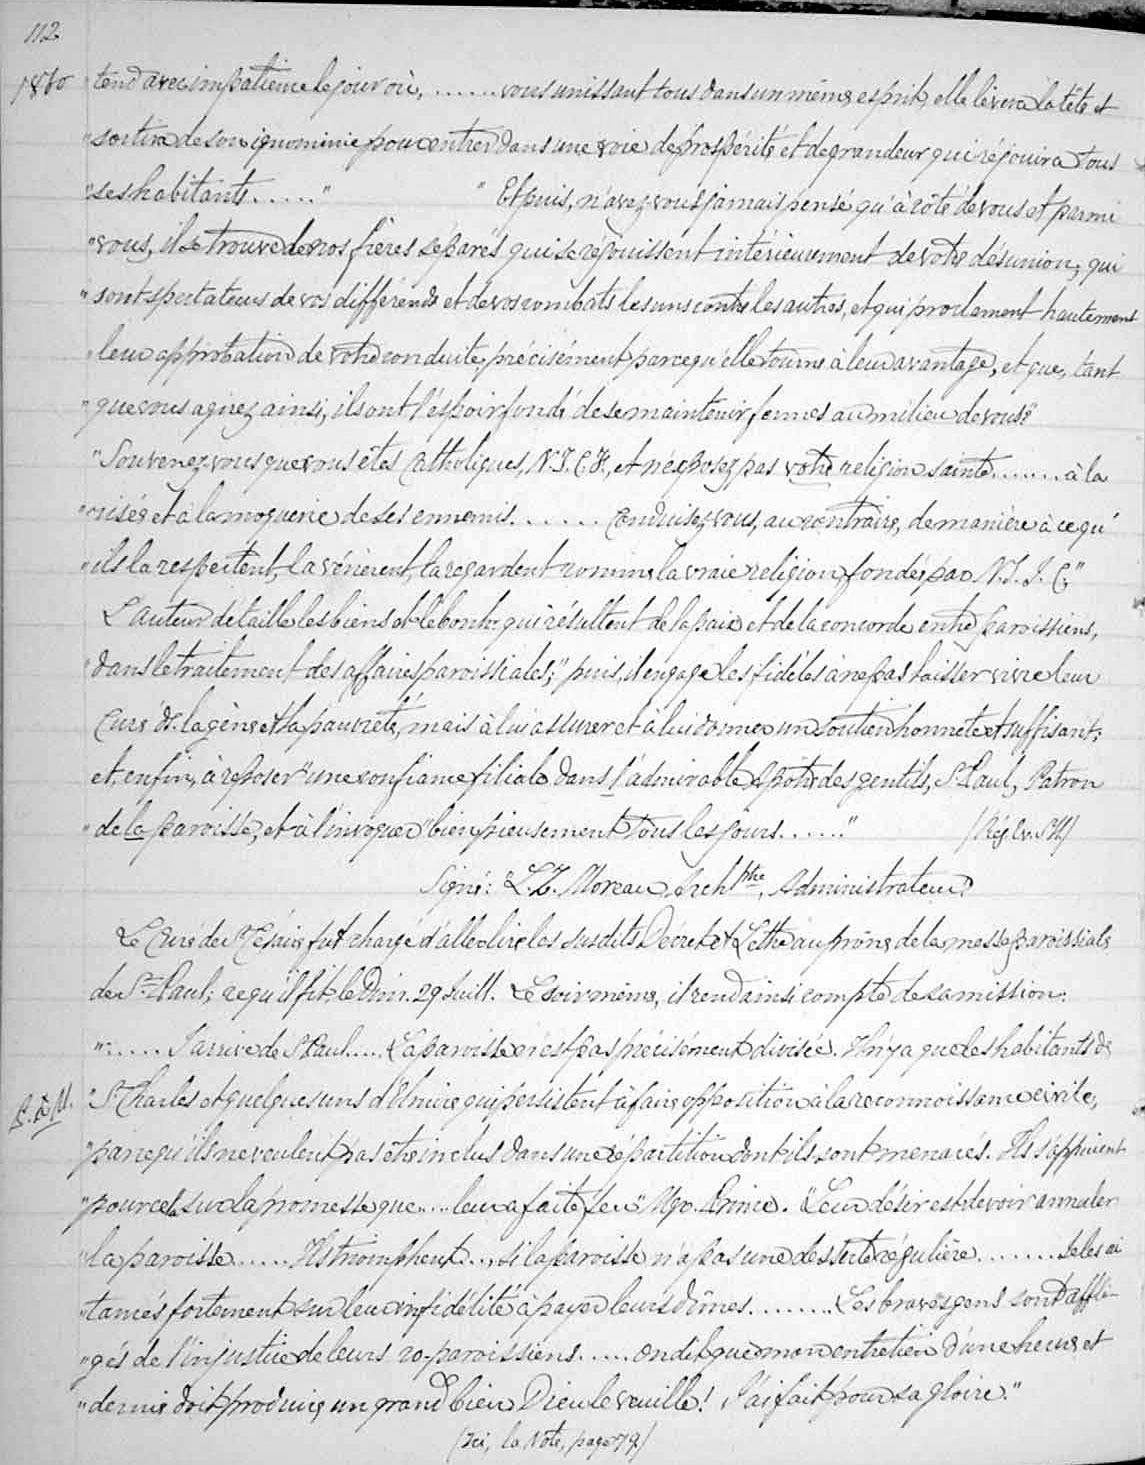 112
1860 "tend avec impatience le jour où, ....... vous unissant tous dans un même esprit, elle lèvera la tête et
"sortira de son ignominie pour entrer dans une voie de prospérité et de grandeur qui réjouira tous
"ses habitants....." "Et puis, n'avez-vous jamais pensé qu'à côté de vous et parmi
"vous, il se trouve de nos frères séparés qui se réjouissent intérieurement de votre désunion, qui
"sont spectateurs de vos différends et de vos combats les uns contre les autres, et qui proclament hautement
"leur approbation de votre conduite, précisément parcequ'elle tourne à leur avantage, et que, tant
"que vous agirez ainsi, ils ont l'espoir fondé de se maintenir fermes au milieu de vous?"
"Souvenez-vous que vous êtes catholiques, N. T. C. F., et n'exposez pas votre religion sainte....... à la
"risée et à la moquerie de ses ennemis....... Conduisez-vous, au contraire, de manière à ce qu'
"ils la respectent, la vénèrent, la regardent comme la vraie religion fondée par N. S. J. C."
L'auteur détaille les biens et le bonhr. qui résultent de la paix et de la concorde entre paroissiens,
"dans le traitement des affaires paroissiales;" puis, il engage les fidèles à ne pas laisser vivre leur
Curé ds. la gêne et la pauvreté, mais à lui assurer et à lui donner un soutien honnête et suffisant;
et, enfin, à reposer "une confiance filiale dans l'admirable Apôtre des gentils, St. Paul, Patron
"de la paroisse, et à l'invoquer "bien pieusement tous les jours......" (Rég. Ev. St. H.)
Signé: L. Z. Moreau, Archptre, Administrateur.
Le Curé de St. Césaire fut chargé d'aller lire les susdits Décret et Lettre au prône de la messe paroissiale
de St. Paul; ce qu'il fit le Dim. 29 Juill. Le soir même, il rend ainsi compte de sa mission:
"..... J'arrive de St. Paul..... La paroisse n'est pas précisément divisée. Il n'y a que les habitants de
"St. Charles et quelques uns d'Elmire qui persistent à faire opposition à la reconnoissance civile,
"parcequ'ils ne veulent pas être inclus dans une répartition dont ils sont menacés. Ils s'appuient
"pour cela sur la promesse que..... leur a faite feu" Mgr. Prince. "Leur désir est de voir annuler
"la paroisse...... Ils triomphent..., si la paroisse n'a pas une desserte régulière....... Je les ai
"tancés fortement sur leur infidélité à payer leurs dîmes........ Les braves gens sont afffli-
"gés de l'injustice de leurs co-paroissiens..... On dit que mon entretien d'une heure et
"demie doit produire un grand bien. Dieu le veuille! J'ai fait pour sa gloire."
(Ici, la Note, page 79)